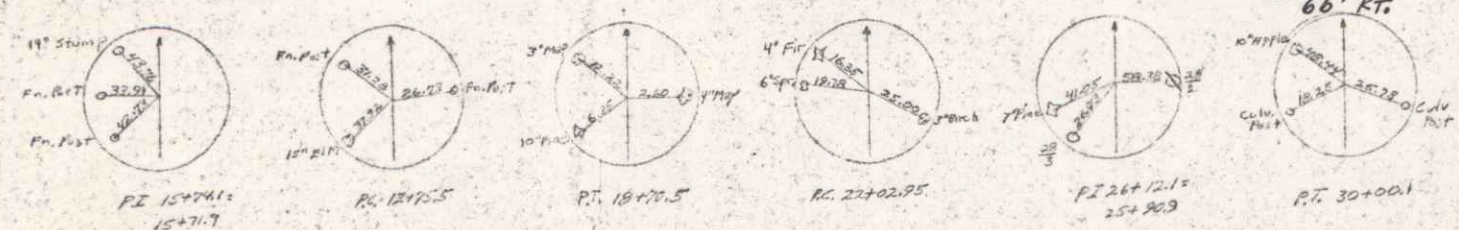 66' RT.
19" Stump
43.76
Fn. Post
32.91
Fn. Post
42.73
P.I. 15+74.1=
15+71.9
Fn. Post
31.28
26.73
Fn. Post
15" Elm
37.92
P.C. 12+75.5
3" Map
12.22
2.60
4" Map
10" Pine
6.25
P.T. 18+70.5
4" Fir
16.35
6" Spr.
19.78
25.00
3" Birch
P.C. 22+02.95
41.05
7" Pine
58.38
P.I. 26+12.1=
25+90.9
10" Apple
48.44
18.25
Culv.
Post
25.78
Culv
Post
P.T. 30+00.1